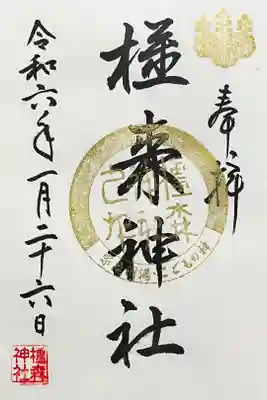 奉拝
橿森神社
令和六年一月二十六日
橿森神社